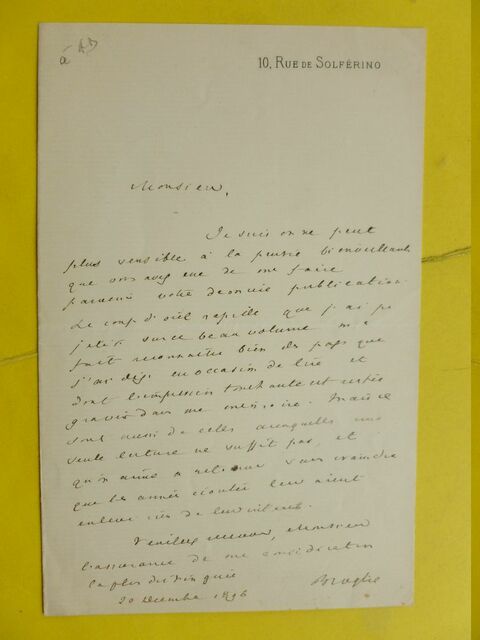 à AD
10, RUE DE SOLFÉRINO
Monsieur,
Je suis on ne peut
plus sensible à la pensée bienveillante
que vous avez eue de me faire
parvenir votre dernière publication.
Le coup d'œil rapide que j'ai pu
jeter sur ce beau volume m'a
fait reconnaître bien des pages que
j'ai déjà eu occasion de lire et
dont l'impression touchante est restée
gravée dans ma mémoire. Mais ce
sont aussi de celles auxquelles une
seule lecture ne suffit pas, et
qu'on aime à retrouver sans craindre
que les années écoulées leur aient
enlevé rien de leur intérêt.
Veuillez recevoir, Monsieur
l'assurance de ma considération
la plus distinguée
Broglie
20 décembre 1896